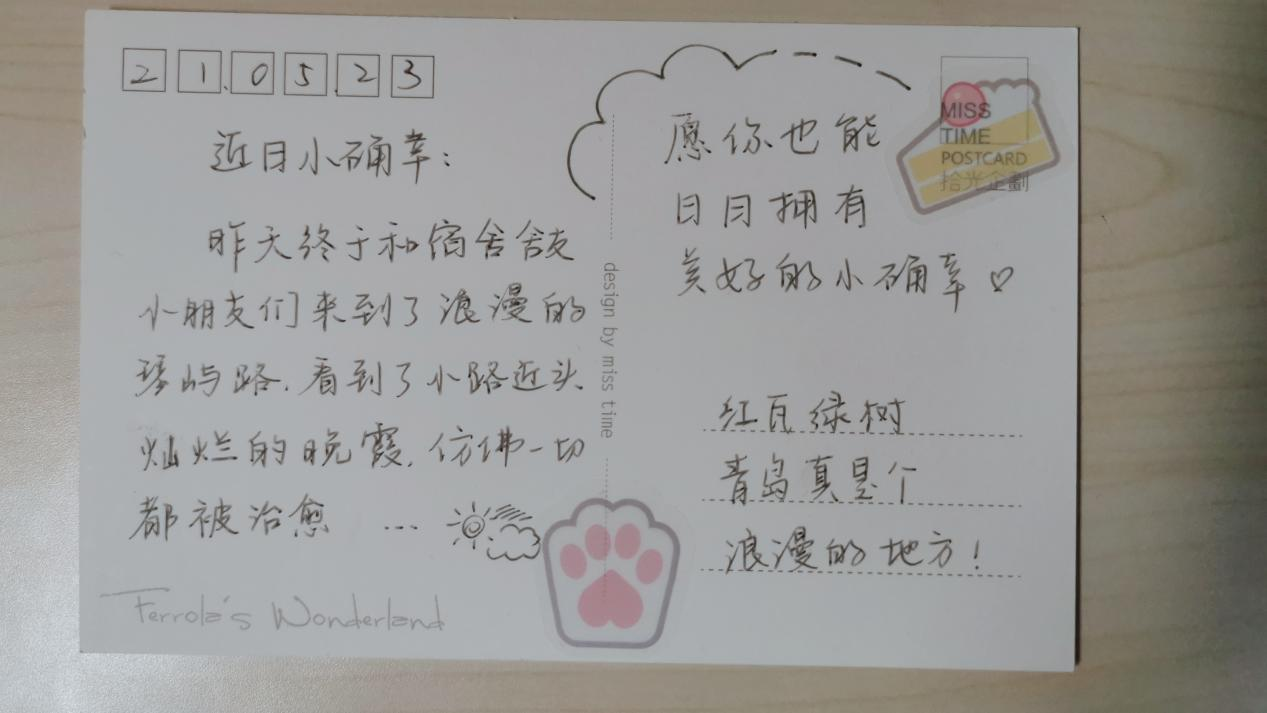 21.05.23
近日小确幸：
昨天终于和宿舍舍友
小朋友们来到了浪漫的
琴屿路，看到了小路近头
灿烂的晚霞，仿佛一切
都被治愈 ...
Ferrola's Wonderland
design by miss time
愿你也能
日日拥有
美好的小确幸♡
MISS
TIME
POSTCARD
拾光企劃
红瓦绿树
青岛真是个
浪漫的地方！